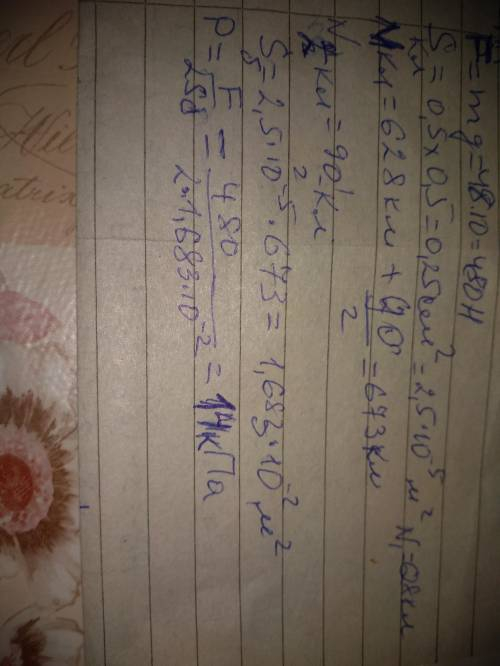 F = mg = 48·10 = 480 H
Sкл = 0,5 x 0,5 = 0,25 см² = 2,5·10⁻⁵ м² N₁ = 628 кл
Nкл = 628 кл + 90/2 = 673 кл
N₂кл = 90 кл
S = 2,5·10⁻⁵·673 = 1,683·10⁻² м²
P = F/2S = 480/2·1,683·10⁻² = 14 кПа